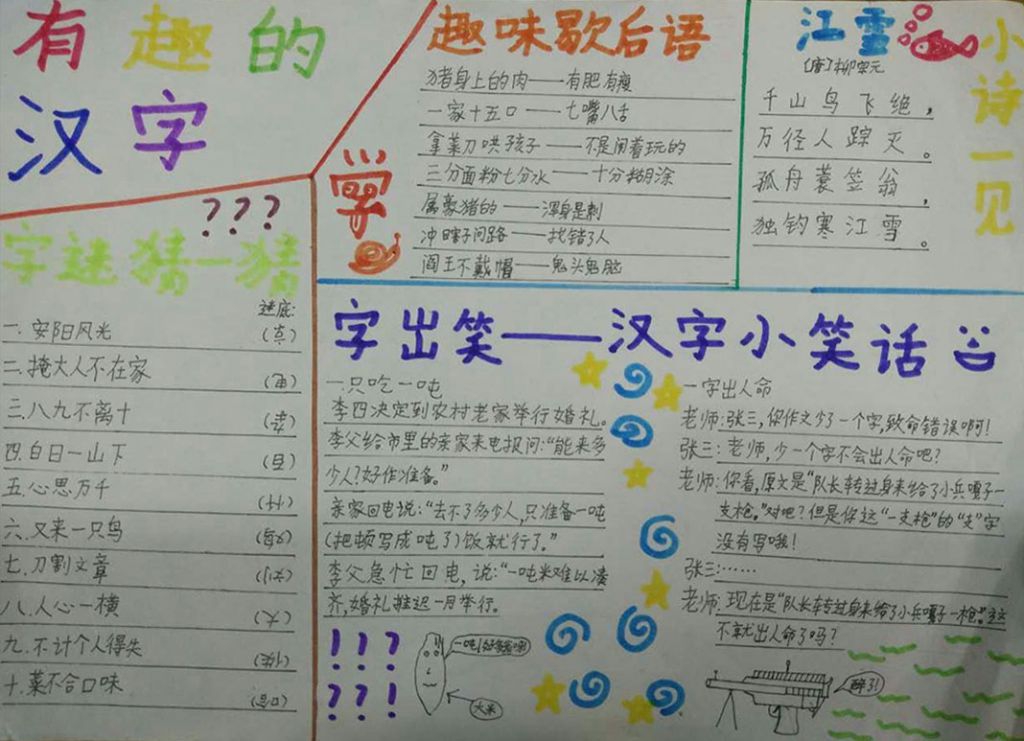 有趣的
汉字
趣味歇后语
猪身上的肉——有肥有瘦
一家十五口——七嘴八舌
拿菜刀哄孩子——不是闹着玩的
三分面粉七分水——十分糊涂
属豪猪的——浑身是刺
冲瞎子问路——找错了人
阎王不戴帽——鬼头鬼脑
学
江雪
(唐)柳宗元
千山鸟飞绝，
万径人踪灭。
孤舟蓑笠翁，
独钓寒江雪。
小诗一见
???
字迷猜一猜
迷底:
一.安阳风光
二.掩大人不在家
三.八九不离十
四.白日一山下
五.心思万千
六.又来一只鸟
七.刀割文章
八.人心一横
九.不计个人得失
十.菜不合口味
字出笑——汉字小笑话
一.只吃一吨
李四决定到农村老家举行婚礼。
李父给市里的亲家来电报问:“能来多
少人?好作准备。”
亲家回电说:“去不了多少人,只准备一吨
(把顿写成吨了)饭就行了。”
李父急忙回电,说:“一吨米难以凑
齐,婚礼推迟一月举行。
!!??
??!
大米
一字出人命
老师:张三,你作文少了一个字,致命错误啊!
张三:老师,少一个字不会出人命吧?
老师:你看,原文是“队长转过身来给了小兵嘎子一
支枪。”对吧?但是你这“一支枪”的“支”字
没有写哦!
张三:……
老师:现在是“队长转过身来给了小兵嘎子一枪。”这
不就出人命了吗?
醉了!